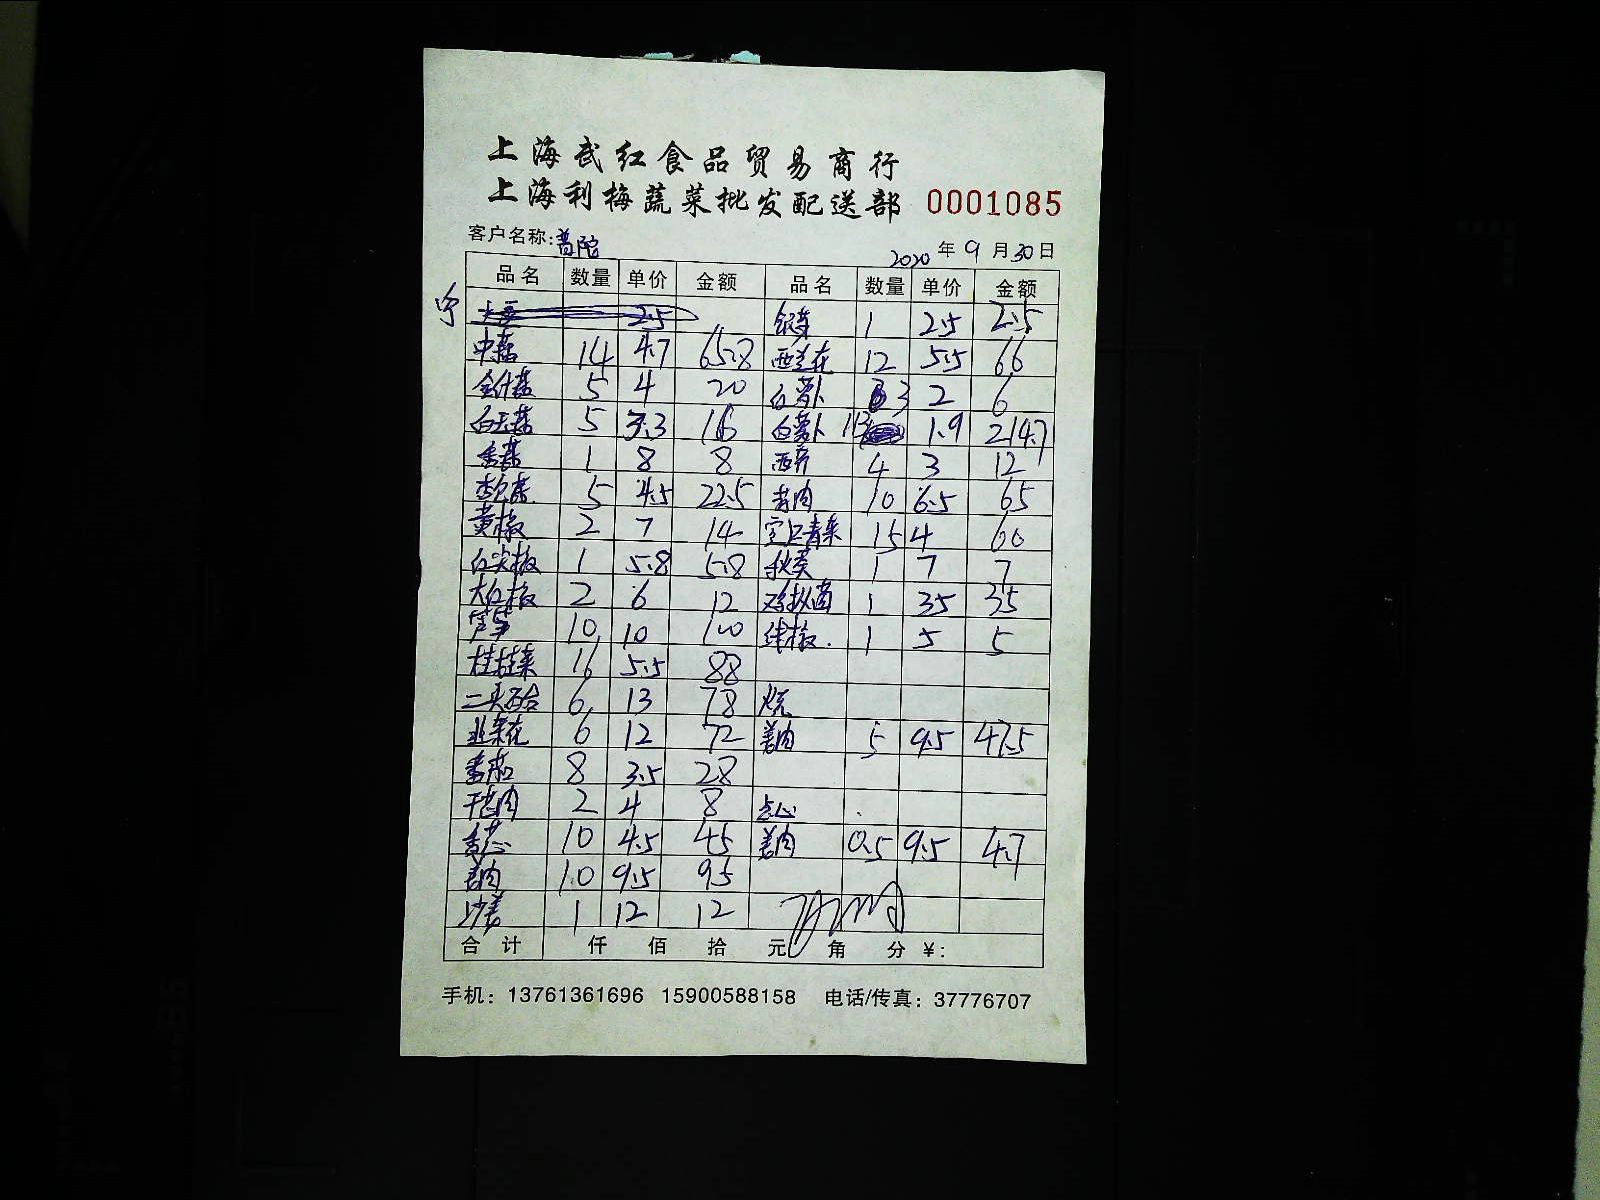 上海武红食品贸易商行
上海利梅蔬菜批发配送部 0001085
客户名称:普陀 2020年9月30日
品名 数量 单价 金额 品名 数量 单价 金额
2.5 银芽 1 2.5 2.5
中菇 14 4.7 65.8 西兰花 12 5.5 66
金针菇 5 4 20 白萝卜 3 2 6
白玉菇 5 3.3 16 白萝卜 113 1.9 214.7
香菇 1 8 8 西芹 4 3 12
杏包菇 5 4.5 22.5 10 6.5 65
黄椒 2 7 14 青菜 15 4 60
红尖椒 1 5.8 5.8 秋葵 1 7 7
大红椒 2 6 12 鸡枞菌 1 35 35
芦笋 10 10 100 线椒 1 5 5
16 5.5 88
二头百合 6 13 78
韭菜花 6 12 72 姜肉 5 9.5 47.5
番茄 8 3.5 28
2 4 8 点心
香芯 10 4.5 45 姜肉 0.5 9.5 4.7
姜肉 10 9.5 95
沙姜 1 12 12
合计 仟 佰 拾 元 角 分 ¥:
手机: 13761361696 15900588158 电话/传真: 37776707